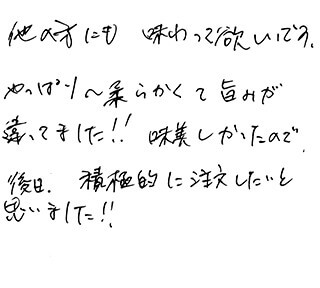 他の方にも 味わって欲しいです。
やっぱり〜柔らかくて旨みが
違ってました!! 味美しかったので
後日、積極的に注文したいと
思いました!!